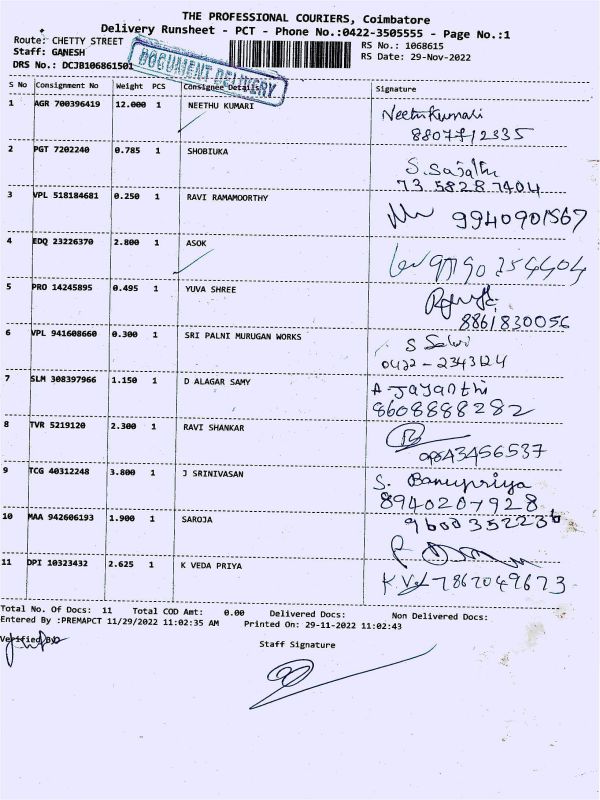 THE PROFESSIONAL COURIERS, Coimbatore
Delivery Runsheet - PCT - Phone No.:0422-3505555 - Page No.:1
Route: CHETTY STREET
RS No.: 1068615
Staff: GANESH
RS Date: 29-Nov-2022
DRS No.: DCJB106861501
DOCUMENT DELIVERY
S No Consignment No Weight PCS Consignee Details Signature
1 AGR 700396419 12.000 1 NEETHU KUMARI Neethukumari
8807712335
2 PGT 7202240 0.785 1 SHOBIUKA S.Sujatha
73 58287404
3 VPL 518184681 0.250 1 RAVI RAMAMOORTHY 9940901567
4 EDQ 23226370 2.800 1 ASOK
5 PRO 14245895 0.495 1 YUVA SHREE
8861830056
6 VPL 941608660 0.300 1 SRI PALNI MURUGAN WORKS S Selvi
0422-2343124
7 SLM 308397966 1.150 1 D ALAGAR SAMY A Jayanthi
8608888282
8 TVR 5219120 2.300 1 RAVI SHANKAR
09843456537
9 TCG 40312248 3.800 1 J SRINIVASAN S. Banupriya
8940207928
10 MAA 942606193 1.900 1 SAROJA 9600352236
11 DPI 10323432 2.625 1 K VEDA PRIYA K.V 7867049673
Total No. Of Docs: 11 Total COD Amt: 0.00 Delivered Docs: Non Delivered Docs:
Entered By :PREMAPCT 11/29/2022 11:02:35 AM Printed On: 29-11-2022 11:02:43
Verified By:
Staff Signature